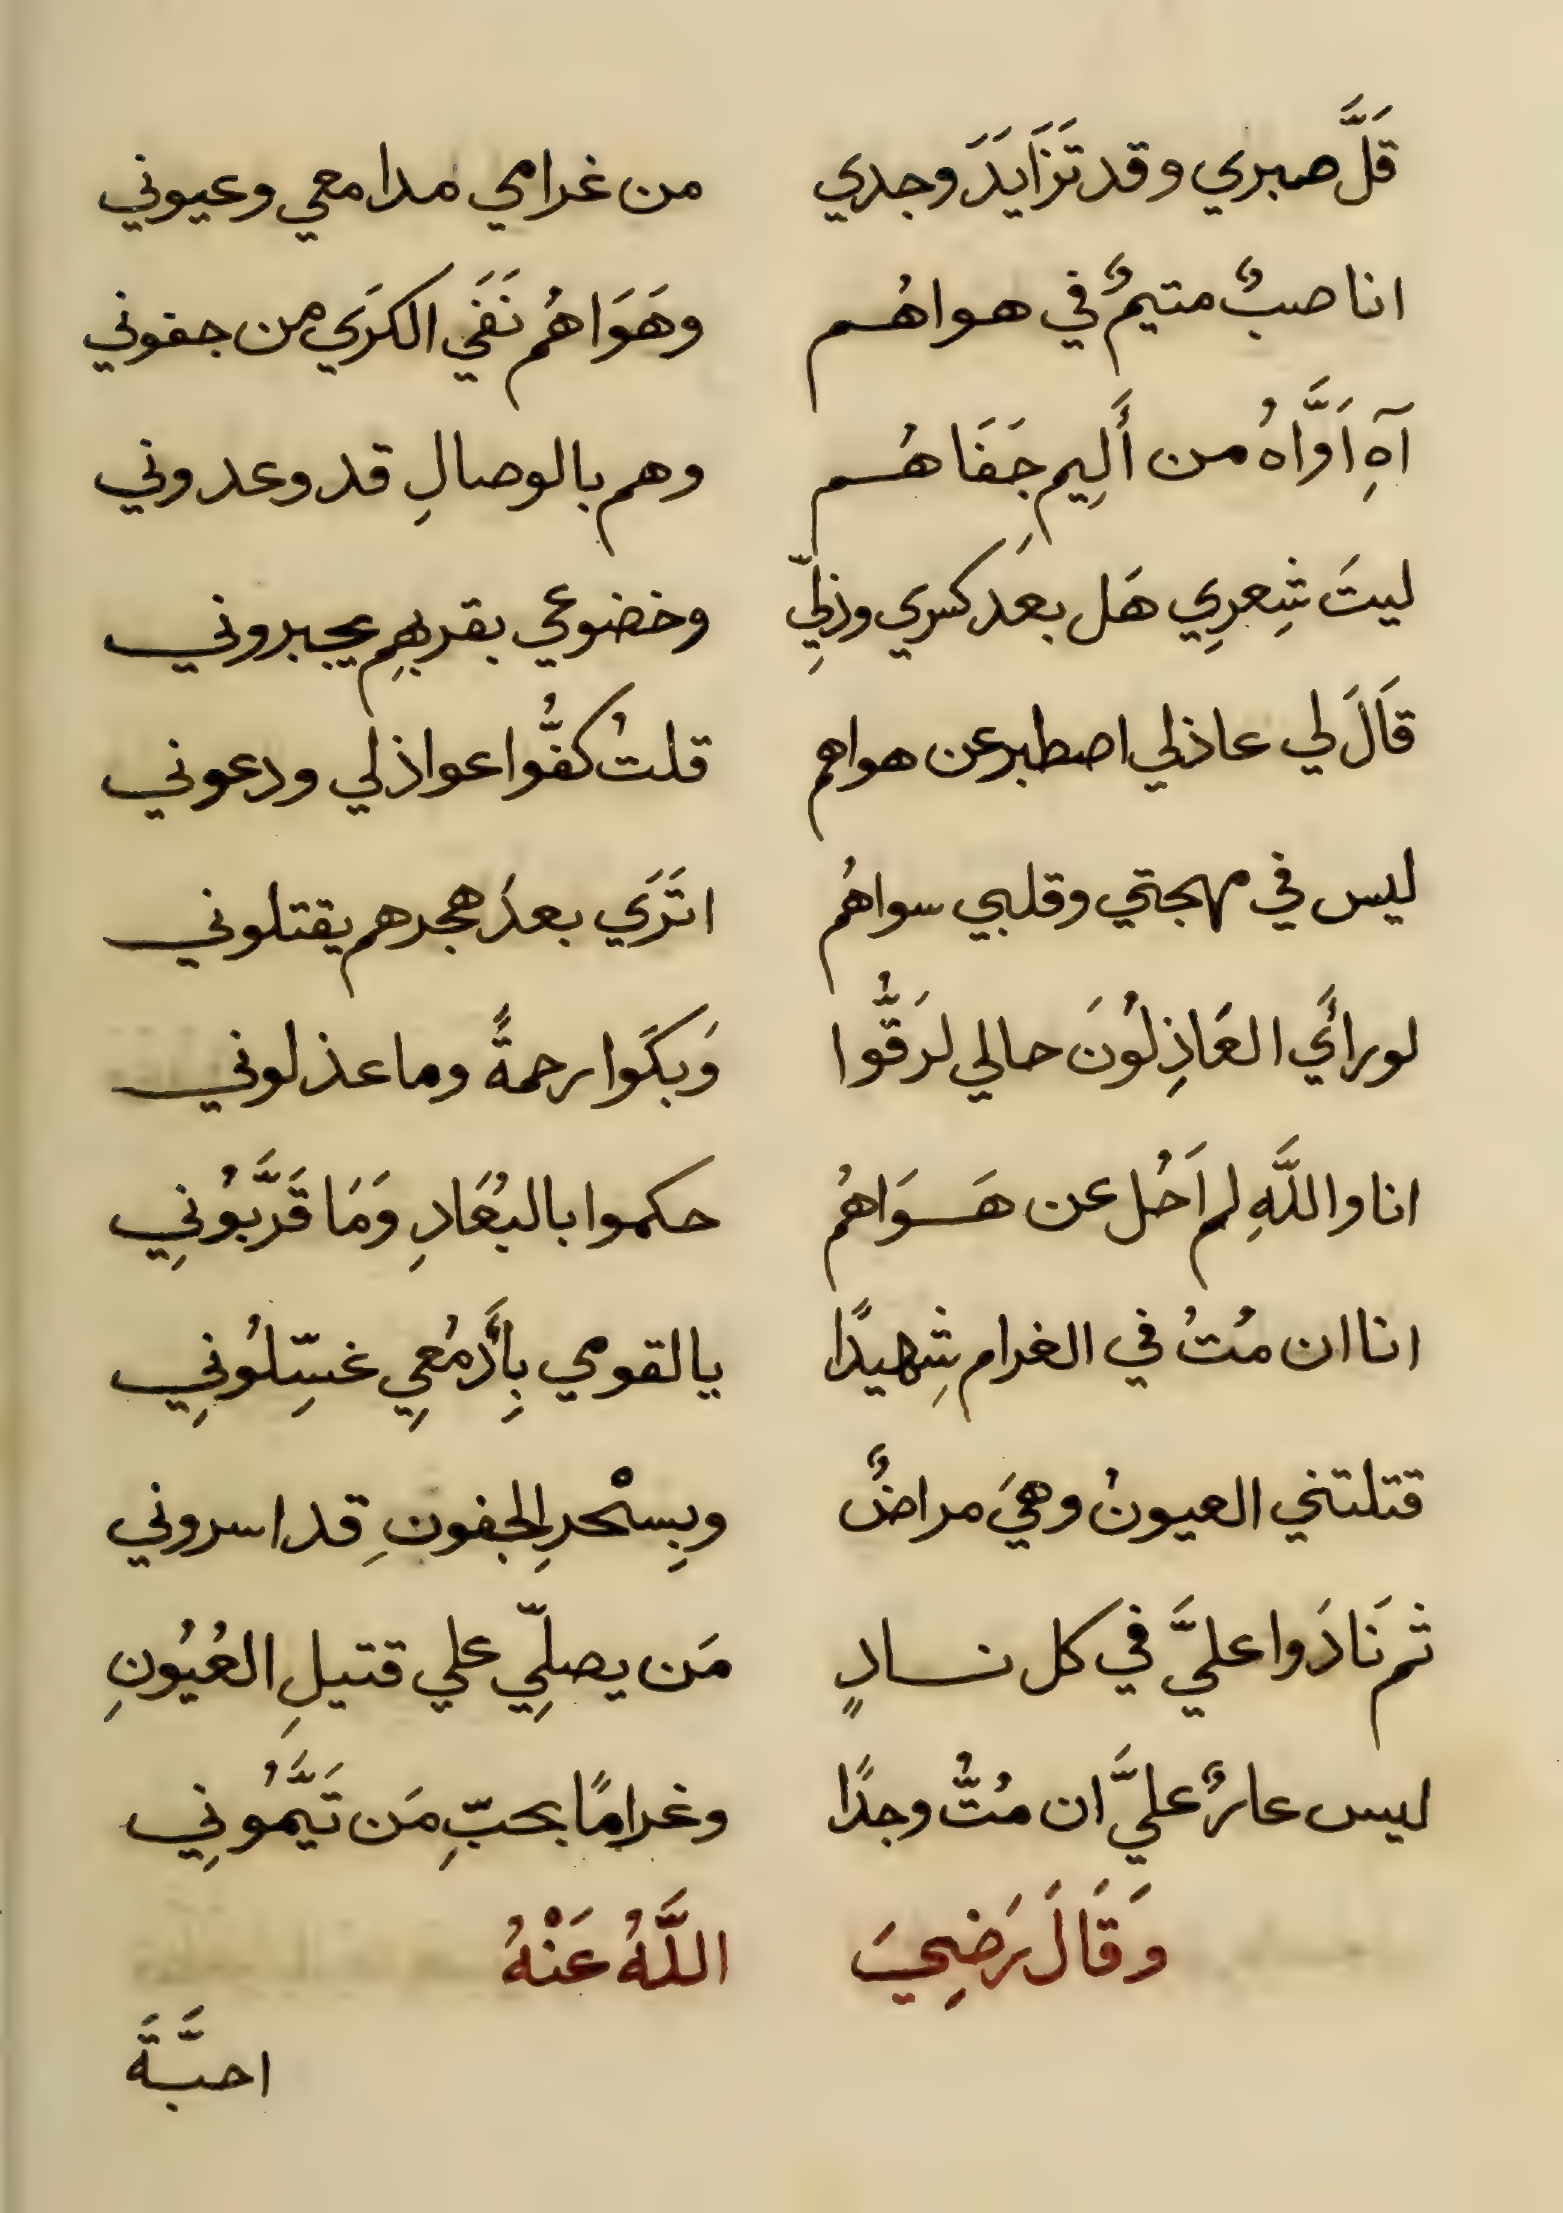 قَلَّ صبري وقد تَزَايَدَ وجدي من غرامي مدامعي وعيوني
انا صبٌ متيمٌ في هواهُم وهَوَاهُم نَفَي الكرَي من جفوني
آهِ اَوَّاهُ من أَلِيمِ جَفَاهُم وهم بالوصالِ قد وعدوني
ليتَ شِعرِي هَل بعَد كسري وذلِّي وخضوعي بقربهِم يجبروني
قَالَ لي عاذلي اصطبر عن هواهم قلتُ كفُّوا عواذلي ودعوني
ليس في مهجتي وقلبي سواهُم اتَرَي بعدَ هجرهم يقتلوني
لو رأَي العَاذِلُونَ حالي لرَقُّوا وَبكَوا رحمةً وما عذلوني
انا واللَّهِ لم اَحُل عن هَوَاهُم حكموا بالبُعَادِ وَمَا قَرَّبُونِي
انا ان مُتُ في الغرام شِهيدًا يا لقومي بِأَدمُعِي غسِّلُونِي
قتلتني العيونُ وهيَ مراضٌ وبِسْحرِ الجفونِ قد اسروني
ثم نَادَوا عليَّ في كل نادٍ مَن يصلِّي علي قتيلِ العُيُونِ
ليس عارٌ عليَّ ان مُتُّ وجدًا وغرامًا بحبِّ مَن تَيَّمُونِي
وَقَالَ رَضِيَ اللَّهُ عَنْهُ
احبَّةَ